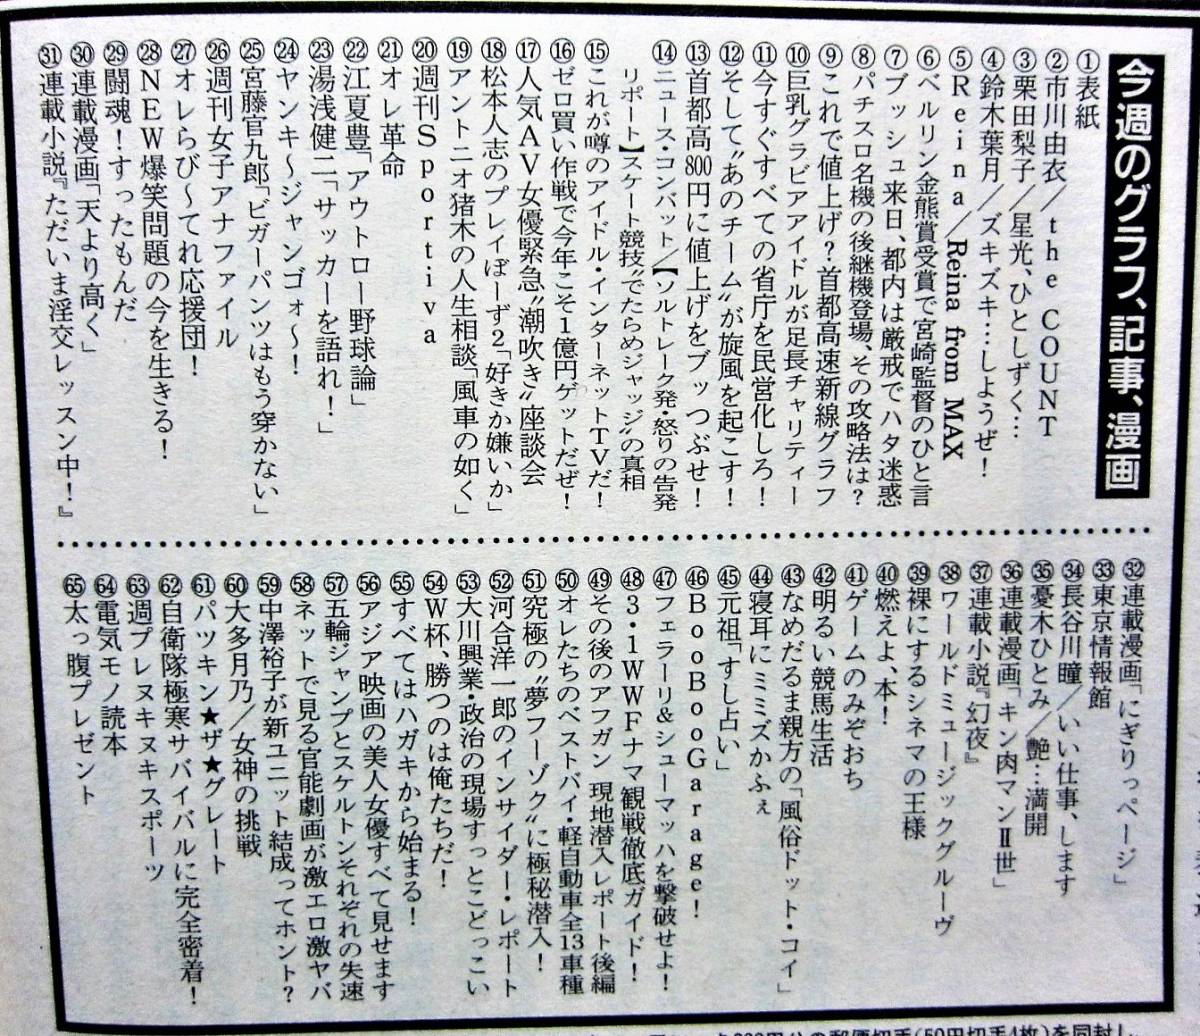 今週のグラフ、記事、漫画
①表紙
②市川由衣／the COUNT
③栗田梨子／星光、ひとしずく…
④鈴木葉月／ズキズキ…しようぜ！
⑤Reina／Reina from MAX
⑥ベルリン金熊賞受賞で宮崎監督のひと言
⑦ブッシュ来日、都内は厳戒でハタ迷惑
⑧パチスロ名機の後継機登場、その攻略法は？
⑨これで値上げ？首都高速新線グラフ
⑩巨乳グラビアアイドルが足長チャリティー
⑪今すぐすべての省庁を民営化しろ！
⑫そして〝あのチーム〟が旋風を起こす！
⑬首都高800円に値上げをブッつぶせ！
⑭ニュース・コンバット／【ソルトレーク発・怒りの告発
リポート】スケート競技〝でたらめジャッジ〟の真相
⑮これが噂のアイドル・インターネットTVだ！
⑯ゼロ買い作戦で今年こそ1億円ゲットだぜ！
⑰人気AV女優緊急〝潮吹き〟座談会
⑱松本人志のプレイぼーず2「好きか嫌いか」
⑲アントニオ猪木の人生相談「風車の如く」
⑳週刊Sportiva
㉑オレ革命
㉒江夏豊「アウトロー野球論」
㉓湯浅健二「サッカーを語れ！」
㉔ヤンキ～ジャンゴォ～！
㉕宮藤官九郎「ビガーパンツはもう穿かない」
㉖週刊女子アナファイル
㉗オレらび～てれ応援団！
㉘NEW爆笑問題の今を生きる！
㉙闘魂！すったもんだ
㉚連載漫画「天より高く」
㉛連載小説『ただいま淫交レッスン中！』
㉜連載漫画「にぎりっページ」
㉝東京情報館
㉞長谷川瞳／いい仕事、します
㉟憂木ひとみ／艶…満開
㊱連載漫画「キン肉マンⅡ世」
㊲連載小説『幻夜』
㊳ワールドミュージックグルーヴ
㊴裸にするシネマの王様
㊵燃えよ、本！
㊶ゲームのみぞおち
㊷明るい競馬生活
㊸なめだるま親方の「風俗ドット・コイ」
㊹寝耳にミミズかふぇ
㊺元祖「すし占い」
㊻BooBooGarage！
㊼フェラーリ&シューマッハを撃破せよ！
㊽3・1WWFナマ観戦徹底ガイド！
㊾その後のアフガン 現地潜入レポート後編
㊿オレたちのベストバイ・軽自動車全13車種
51究極の〝夢フーゾク〟に極秘潜入！
52河合洋一郎のインサイダー・レポート
53大川興業・政治の現場すっとこどっこい
54W杯、勝つのは俺たちだ！
55すべてはハガキから始まる！
56アジア映画の美人女優すべて見せます
57五輪ジャンプとスケルトンそれぞれの失速
58ネットで見る官能劇画が激エロ激ヤバ
59中澤裕子が新ユニット結成ってホント？
60大多月乃／女神の挑戦
61パツキン★ザ★グレート
62自衛隊極寒サバイバルに完全密着！
63週プレヌキヌキスポーツ
64電気モノ読本
65太っ腹プレゼント